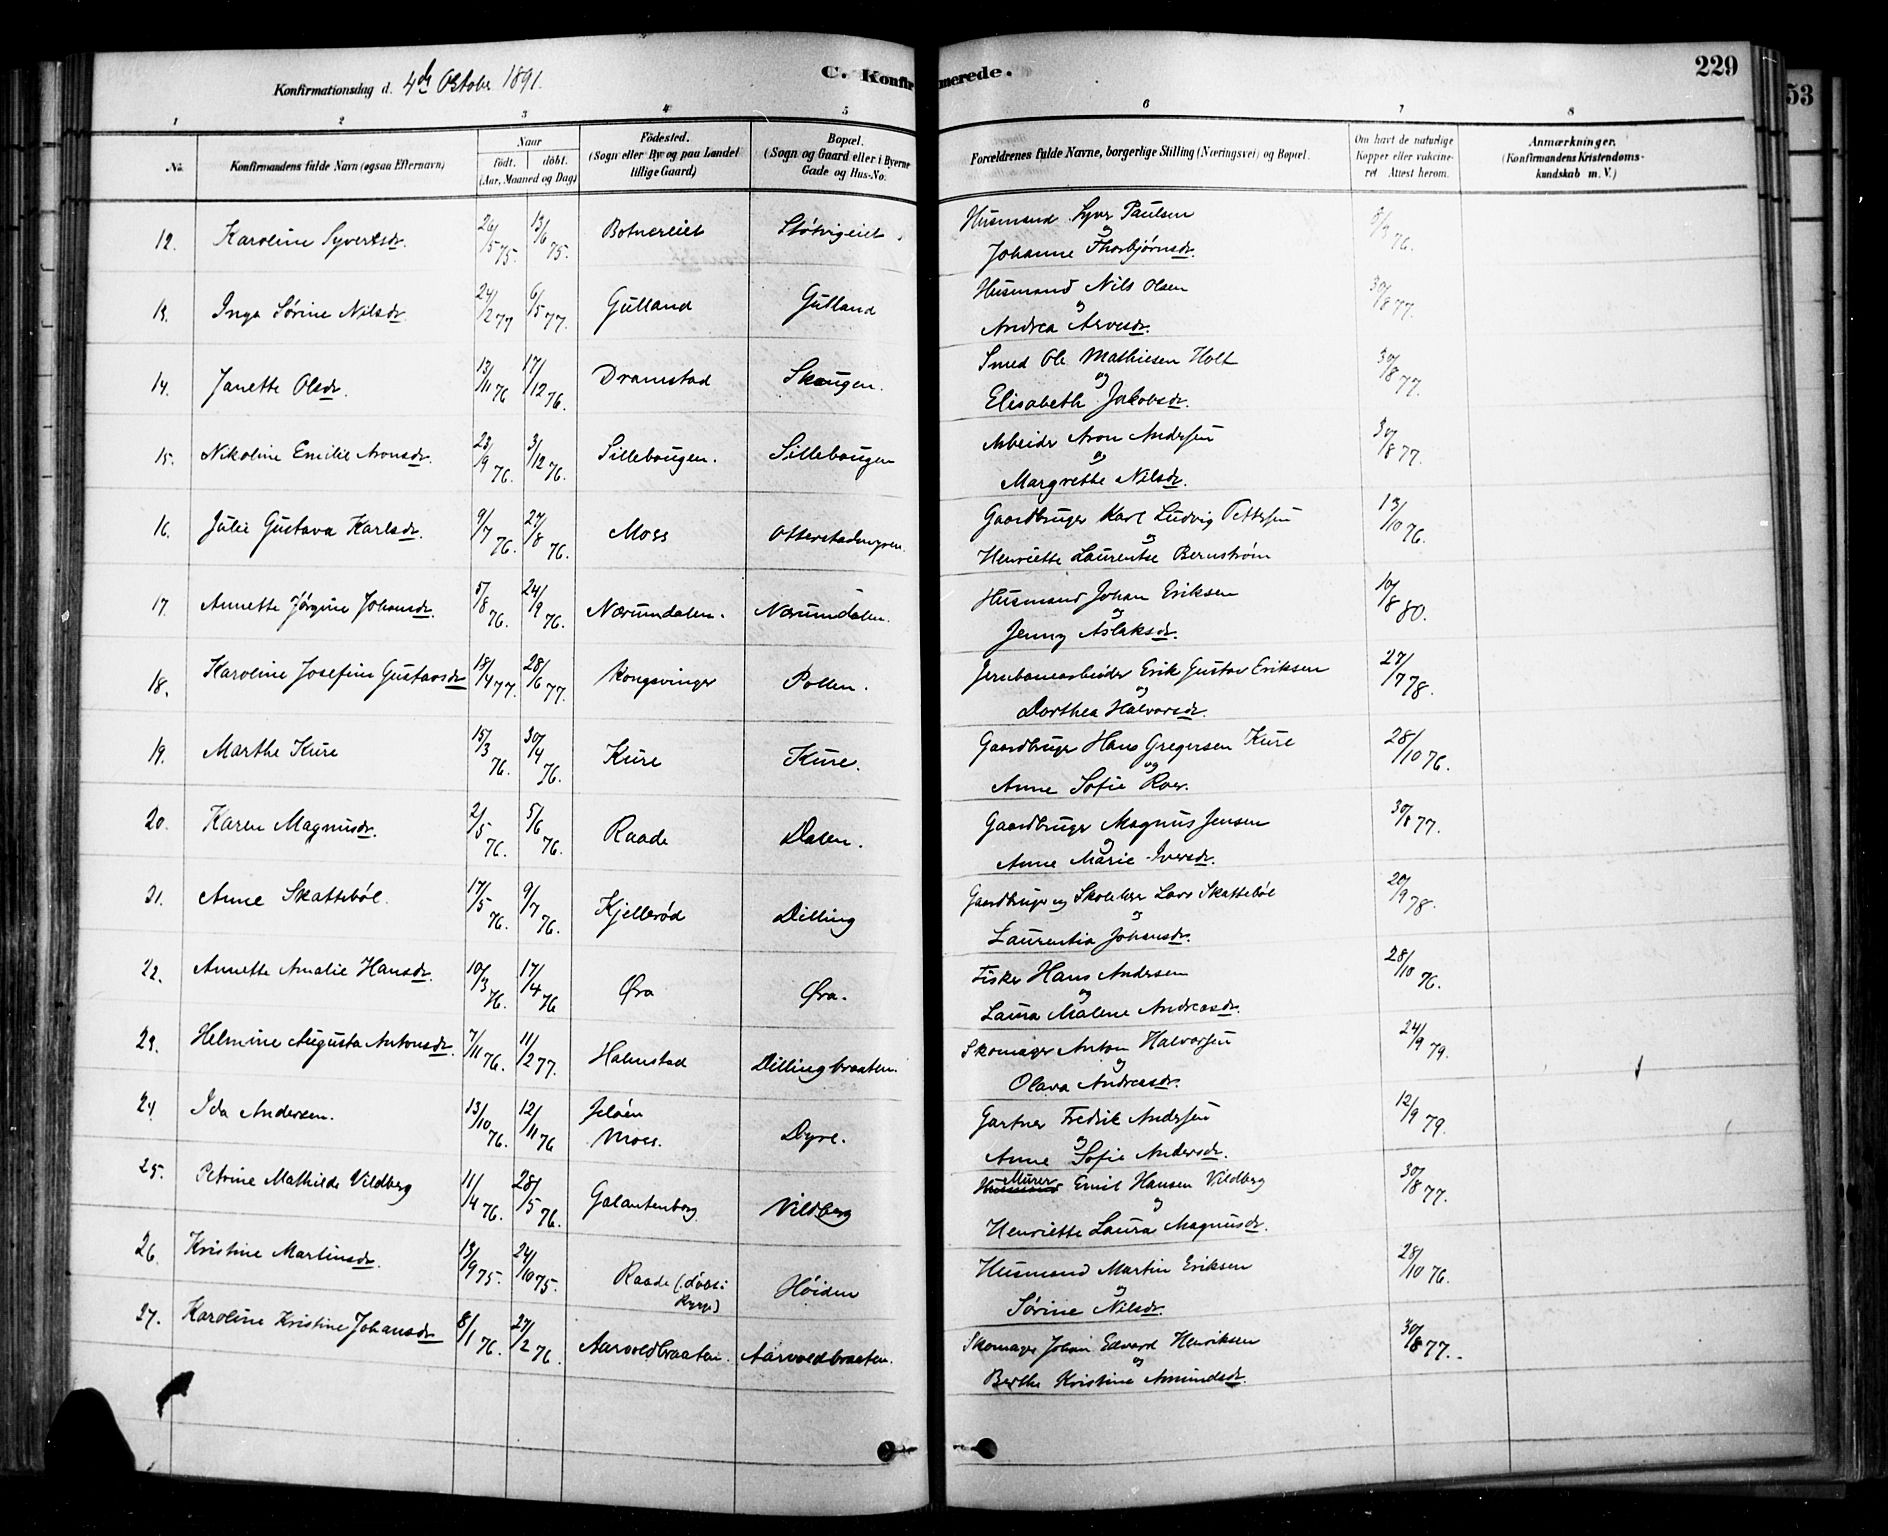 Konfirmationsdag d. 4de Oktober 1891.
C. Konfirmerede.
229
53
1 2 3 4 5 6 7 8
No.
Konfirmandens fulde Navn (ogsaa Efternavn)
Naar
födt. döbt.
(Aar, Maaned og Dag)
Födested.
(Sogn eller By og paa Landet tillige Gaard)
Bopæl.
(Sogn og Gaard eller i Byerne Gade og Hus-No.
Forældrenes fulde Navne, borgerlige Stilling (Næringsvei) og Bopæl.
Om havt de naturlige Kopper eller vakcineret Attest herom.
Anmærkninger.
(Konfirmandens Kristendomskundskab m. V.)
12. Karoline Syvertsdr. 26/5 75. 13/6 75. Botnereiet Støtvigeiet. Husmand Syver Paulsen 8/9 76.
og
Johanne Thorbjørnsdr.
13. Inga Sørine Nilsdr 24/2 77 6/5 77. Gulland Gulland Husmand Nils Olsen 30/8 77.
og
Andrea Arvesdr.
14. Janette Olsdr. 13/11 76 17/12 76. Dramstad Skaugen. Smed Ole Mathiesen Holt 30/8 77.
og
Elisabeth Jakobsdr.
15. Nikoline Emilie Aronsdr. 23/9 76. 3/12 76. Sillebaugen. Sillebaugen Arbeider Aron Andersen 30/8 77.
og
Margrethe Nilsdr.
16. Julie Gustava Karlsdr. 9/7 76. 27/8 76. Moss Otterstadmyren. Gaardbruger Karl Ludvig Pettersen 13/10 76.
og
Henriette Laurentse Bernstrøm
17. Annette Jørgine Johansdr 5/8 76. 24/9 76. Nærumdalen. Nærumdalen. Husmand Johan Eriksen 10/8 80.
og
Jenny Aslaksdr.
18. Karoline Josefine Gustavsdr 18/4 77. 28/6 77. Kongsvinger Pollen. Jernbanearbeider Erik Gustav Eriksen 27/7 78.
og
Dorthea Halvorsdr.
19. Marthe Kure 15/3 76. 30/4 76. Kure Kure. Gaardbruger Hans Gregersen Kure 28/10 76.
og
Anne Sofie Roer.
20. Karen Magnusdr. 2/5 76. 5/6 76. Raade Dalen. Gaardbruger Magnus Jensen 30/8 77.
og
Anne Marie Iversdr.
21. Anne Skattebøl. 17/5 76. 9/7 76. Kjellerød Dilling Gaardbruger og Skolelærer Lars Skattebøl 20/9 78.
og
Laurentia Johansdr.
22. Annette Amalie Hansdr. 10/3 76. 17/4 76 Øra Øra. Fisker Hans Andersen 28/10 76.
og
Laura Malene Andreasdr.
23. Helmine Augusta Antonsdr. 7/11 76. 11/2 77. Halmstad Dillingbraaten. Skomager Anton Halvorsen 24/9 79.
og
Olava Andreasdr.
24. Ida Andersen. 13/10 76. 12/11 76 Jeløen Moss. Dyre. Gartner Fredrik Andersen 12/9 79.
og
Anne Sofie Andersdr.
25. Petrine Mathilde Vildberg 11/4 76. 28/5 76. Galantenborg Vildberg Husmand Murer Emil Hansen Vildberg 30/8 77.
og
Henriette Laura Magnusdr.
26. Kristine Martinsdr. 13/9 75. 24/10 75. Raade (døbt i Rygge) Høiden Husmand Martin Eriksen 28/10 76.
og
Sørine Nilsdr.
27. Karoline Kristine Johansdr 8/1 76. 27/2 76. Aarvoldbraaten. Aarvoldbraaten. Skomager Johan Edvard Henriksen 30/8 77.
og
Berthe Kristine Amundsdr.